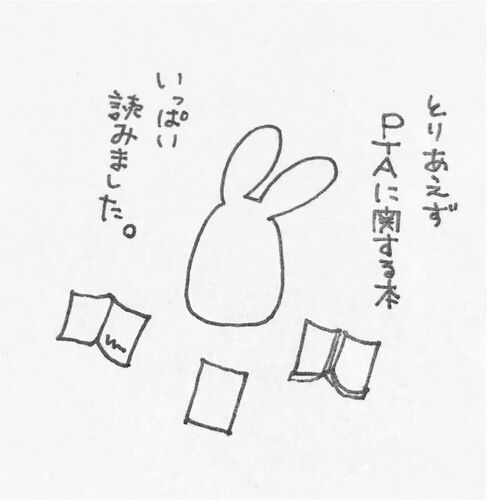 とりあえず
PTAに関する本
いっぱい
読みました。